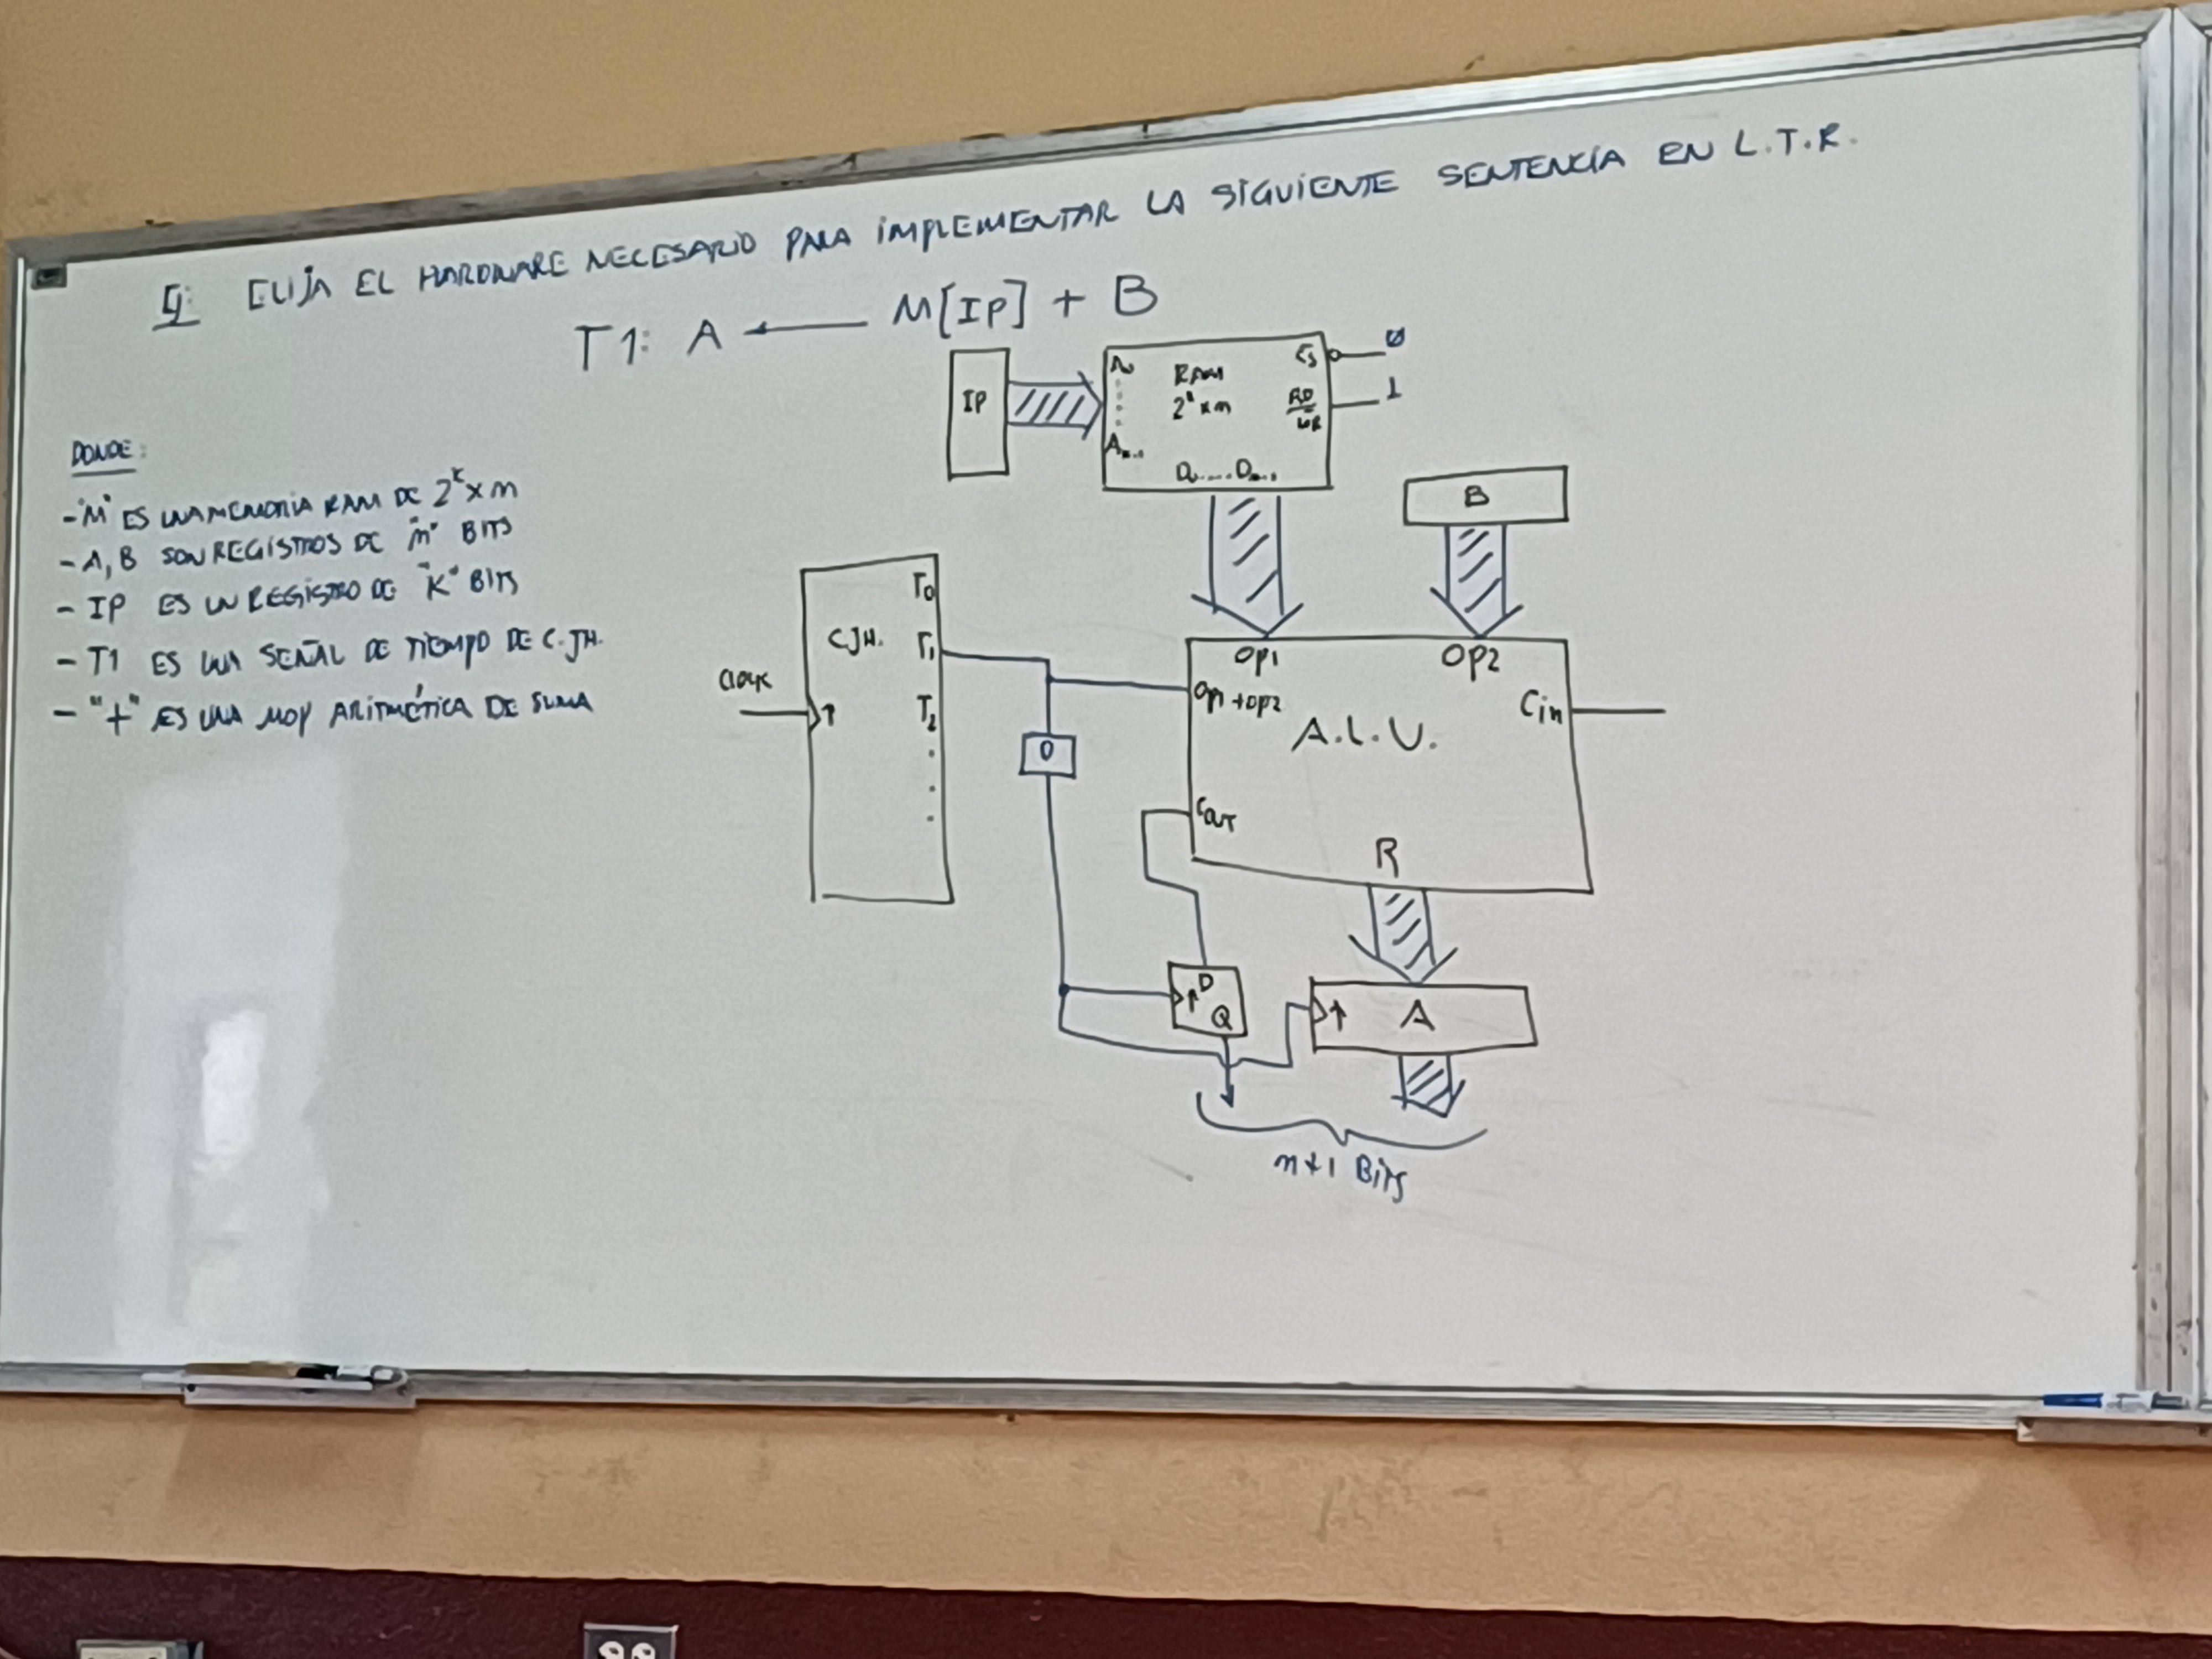 Ej: ELIJA EL HARDWARE NECESARIO PARA IMPLEMENTAR LA SIGUIENTE SENTENCIA EN L.T.R.
T1: A ← M[IP] + B
DONDE:
- "M" ES UNA MEMORIA RAM DE 2^K x n
- A, B SON REGISTROS DE "n" BITS
- IP ES UN REGISTRO DE "K" BITS
- T1 ES UNA SEÑAL DE TIEMPO DE C.JH.
- "+" ES UNA MOP ARITMÉTICA DE SUMA
IP
A0
RAM
2^K x n
CS
0
RD
WR
1
D0.....Dn-1
B
T0
C.JH.
T1
T2
Clock
D
Op1
Op2
Op1+Op2
A.L.U.
Cin
COUT
R
D
Q
A
n+1 Bits